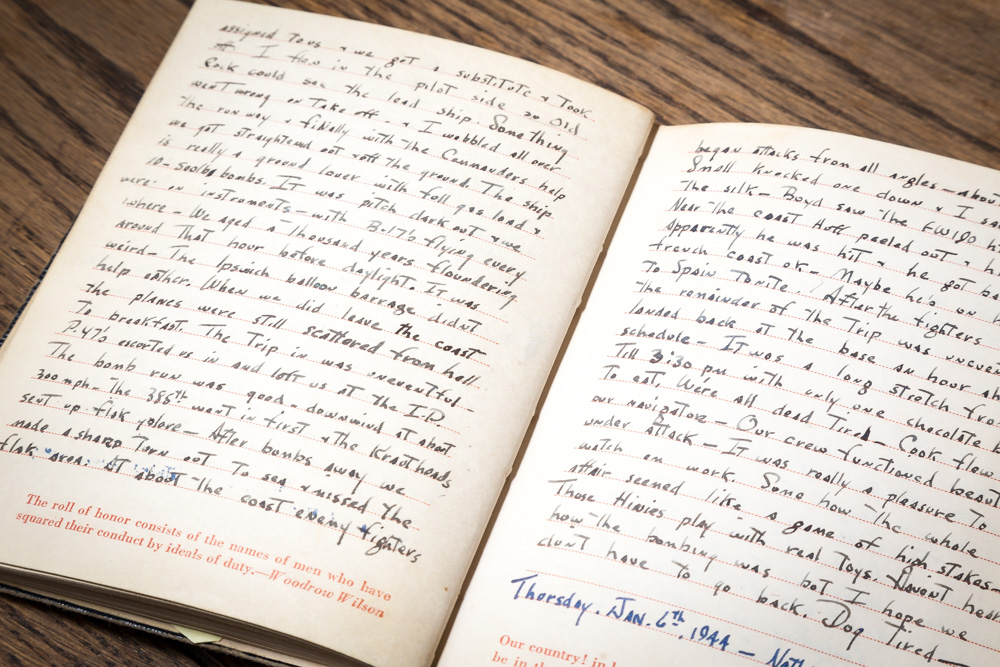 assigned to us & we got a substitute & Took
off. I flew in the pilot side so Old
Cock could see the lead ship. Something
went wrong on Take off. & I wobbled all over
the runway & finally with the Commanders help
we got straightened out & off the ground. The ship
is really a ground lover with full gas load &
10-500lb bombs. IT was pitch dark out & we
were on instruments - with B-17's flying every
where - We aged a Thousand years floundering
around That hour before daylight. It was
weird - The Ipswich balloon barrage didnt
help either. When we did leave the coast
the planes were still scattered from hell
To breakfast. The Trip in was uneventful -
P.47's escorted us in and left us at The I.P.
The bomb run was good - downwind at about
300 mph - The 386th went in first & the Krautheads
sent up flak galore - After bombs away we
made a sharp Turn out To sea & missed The
flak area. At about The coast enemy fighters
The roll of honor consists of the names of men who have
squared their conduct by ideals of duty.—Woodrow Wilson
began attacks from all angles - abou
Small knocked one down & I sa
The silk - Boyd saw The FW190 h
Near The coast Hoff peeled out & h
Apparently he was hit & he got b
french coast ok - Maybe he's on
To Spain Tonite. After the fighters
The remainder of The Trip was uneven
landed back at The base an hour a
schedule - IT was a long stretch fro
Till 3:30 pm with only one chocolate
To eat. We're all dead Tired - Cook flew
our navigator - Our crew functioned beau
under attack - IT was really a pleasure To
watch em work. Some how The whole
affair seemed like a game of high stakes -
Those Hinies play with real Toys. Havent hea
how The bombing was but I hope we
dont have To go back. Dog Tired -
Thursday. Jan. 6th. 1944 - Not
Our country! in
be in th